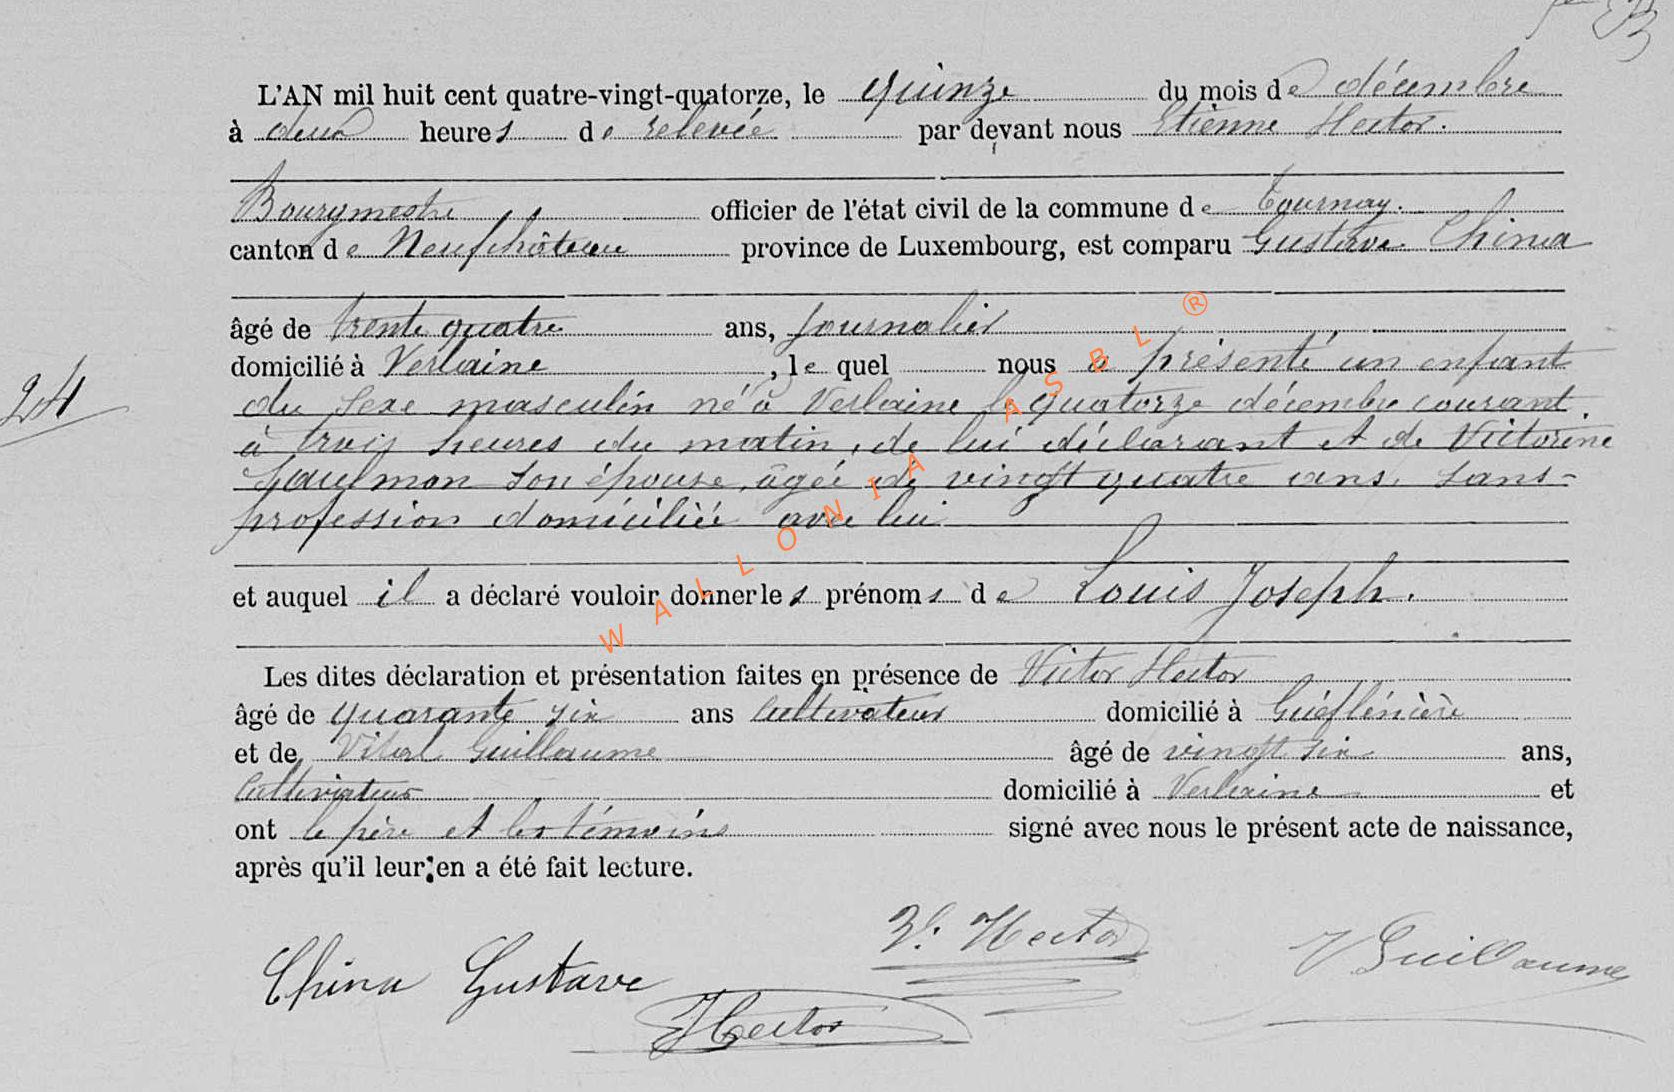 L'AN mil huit cent quatre-vingt-quatorze, le quinze du mois de décembre
à deux heures de relevée par devant nous Etienne Hector.
Bourgmestre officier de l'état civil de la commune de Tournay.
canton de Neufchâteau province de Luxembourg, est comparu Gustave China
âgé de trente quatre ans, journalier
domicilié à Verlaine, le quel nous a présenté un enfant
du sexe masculin né à Verlaine le quatorze décembre courant.
24
à trois heures du matin, de lui déclarant et de Victorine
son épouse, âgée de vingt quatre ans, sans-
profession domiciliée avec lui
et auquel il a déclaré vouloir donner les prénoms de Louis Joseph.
Les dites déclaration et présentation faites en présence de Victor Hector
âgé de quarante six ans Cultivateur domicilié à
et de Vital Guillaume âgé de vingt six ans,
Cultivateur domicilié à Verlaine et
ont le père et les témoins signé avec nous le présent acte de naissance,
après qu'il leur en a été fait lecture.
China Gustave
V. Hector
V Guillaume
Hector
WALLONIA ASBL ®